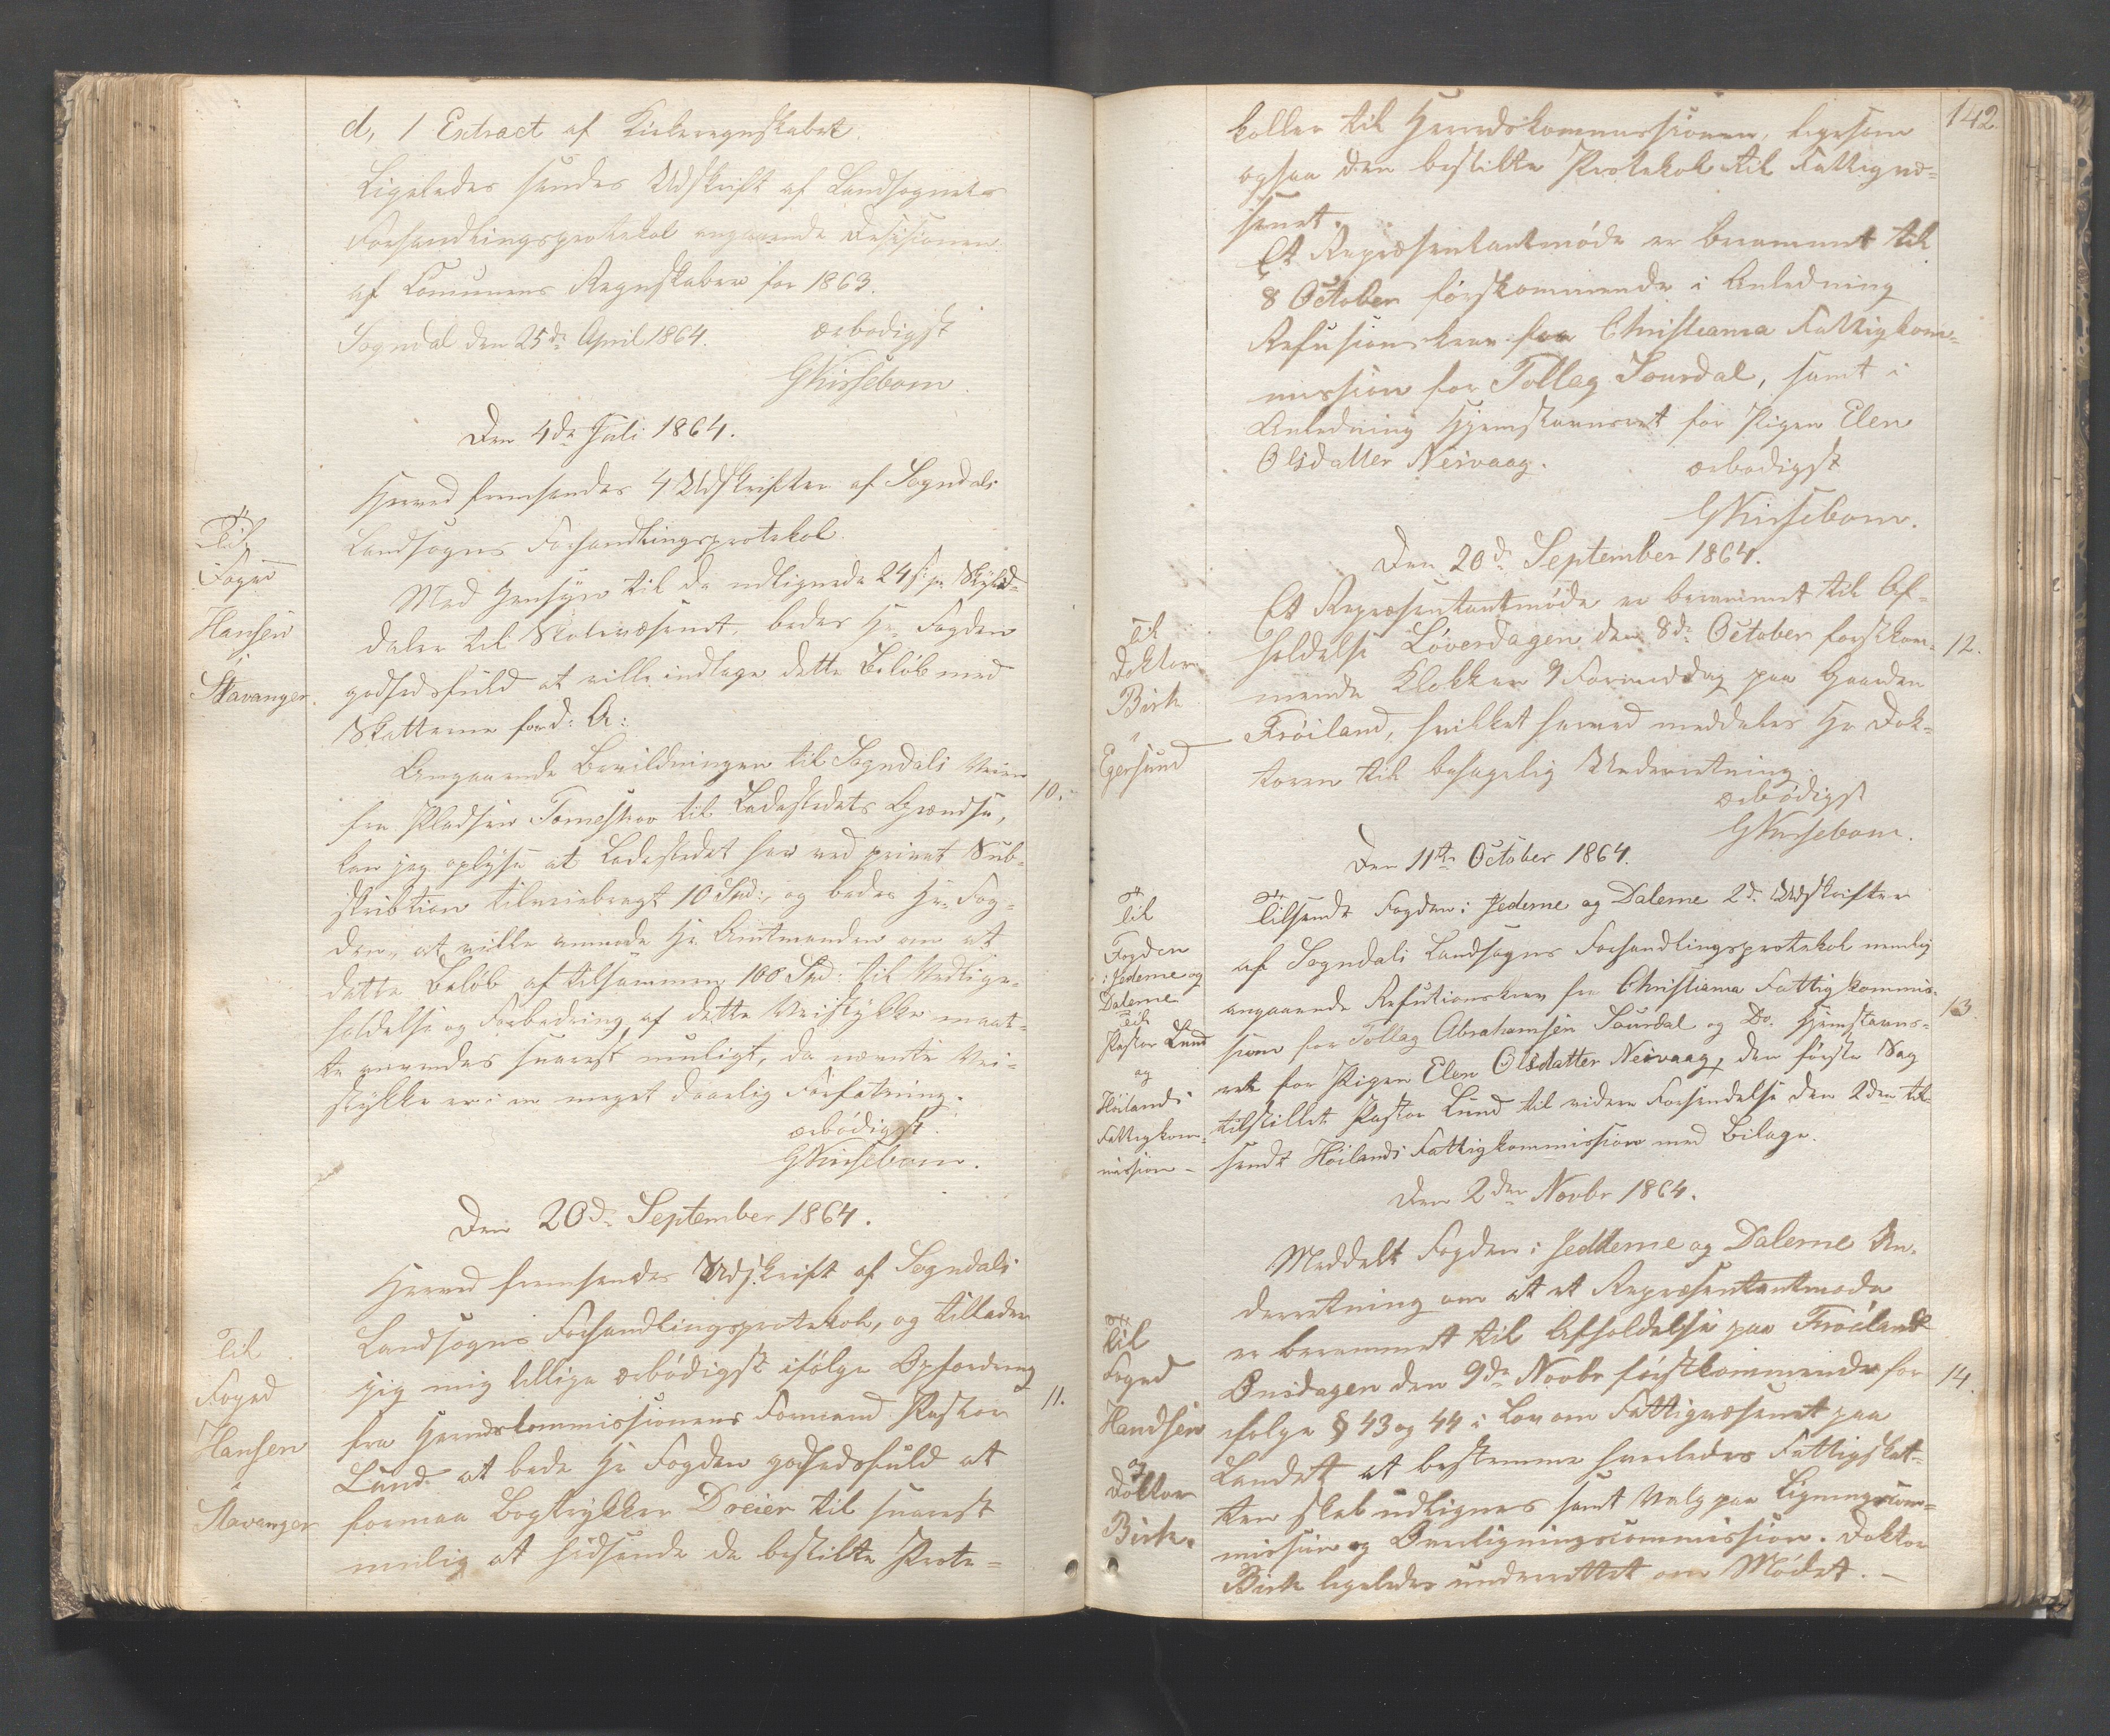 d, 1 Extract af Kirkeregnskabet.
Ligeledes sendes Udskrift af Landsognets
Forhandlingsprotokol angaaende Desisionen
af Comunens Regnskaber for 1863.
Sogndal den 25de April 1864. ærbodigst
GKirsebom.
Den 4de Juli 1864.
Til
Foged
Hansen
i
Stavanger.
Herved fremsendes 4 Udskrifter af Sogndals
Landsogns Forhandlingsprotokol.
Med Hensyn til de udlignede 24 s pr Skyld-
daler til Skolevæsenet, bedes Hr Fogden
godhedsfuld at ville indtage dette Beløb med
Skatterne for d: A:
10.
Angaaende Bevildningen til Sogndals Veien
fra Pladsen Tomeskoo til Ladestedets Grændse,
kan jeg oplyse at Ladestedet har ved privat Sub-
skribtion tilveiebragt 10 Spd:, og bedes Hr: Fog-
den, at ville anmode Hr Amtmanden om at
dette Beløb af tilsammen 100 Spd: til Vedlige-
holdelse og Forbedring af dette Veistykke maat-
te anvendes snarest muligt, da nævnte Vei-
stykke er i en meget daarlig Forfatning.
ærbødigst.
GKirsebom.
Den 20de September 1864.
Til
Foged
Hansen
i
Stavanger
11.
Herved fremsendes Udskrift af Sogndals
Landsogns Forhandlingsprotokol, og tillader
jeg mig tillige ærbødigst ifølge Opfordring
fra Herredskommissionens Formand Pastor
Lund at bede Hr Fogden godhedsfuld at
formaa Bogtrykker Dreier til snarest
mulig at hidsende de bestilte Proto-
142
koller til Herredskommissionen, ligesom
ogsaa den bestilte Protokol til Fattigvæ-
senet.
Et Repræsentantmøde er berammet til
8 October førstkommende i Anledning
Refusionskrav fra Christiania Fattigkom-
mission for Tollag Sourdal, samt i
Anledning Hjemstavnsret for Pigen Elen
Olsdatter Neivaag. ærbødigst
GKirsebom.
Den 20de September 1864.
Til
Doktor
Birk
i
Egersund
12.
Et Repræsentantmøde er berammet til Af-
holdelse Løverdagen den 8de October førstkom-
mende Klokken 9 Formiddag paa Gaarden
Frøiland, hvilket herved meddeles Hr Dok-
toren til behagelig Underretning.
ærbødigst
GKirsebom.
Den 11te October 1864.
Til
Fogden
i Jederne og
Dalerne
Til
Pastor Lund
og
Høilands
Fattigkom-
mission
13.
Tilsendt Fogden i Jederne og Dalerne 2de Udskrifter
af Sogndals Landsogns Forhandlingsprotokol nemlig
angaaende Refutionskrav fra Christiania Fattigkommis-
sion for Tollag Abrahamsen Sourdal og Do. Hjemstavns-
ret for Pigen Elen Olsdatter Neivaag, den første Sag
tilstillet Pastor Lund til videre Forsendelse den 2den til-
sendt Høilands Fattigkommission med Bilage.
Den 2den Novbr 1864.
Til
Foged
Handsen
og
Doktor
Birk.
14.
Meddelt Fogden i Jedderne og Dalerne Un-
derretning om at et Repræsentantmøde
er berammet til Afholdelse paa Frøiland
Onsdagen den 9de Novbr førstkommende for
ifølge § 43 og 44 i Lov om Fattigvæsenet paa
Landet at bestemme hvorledes Fattigskat-
ten skal udlignes samt Valg paa Ligningscom-
mission og Overligningscommission. Doktor
Birk ligeledes underrettet om Mødet. –